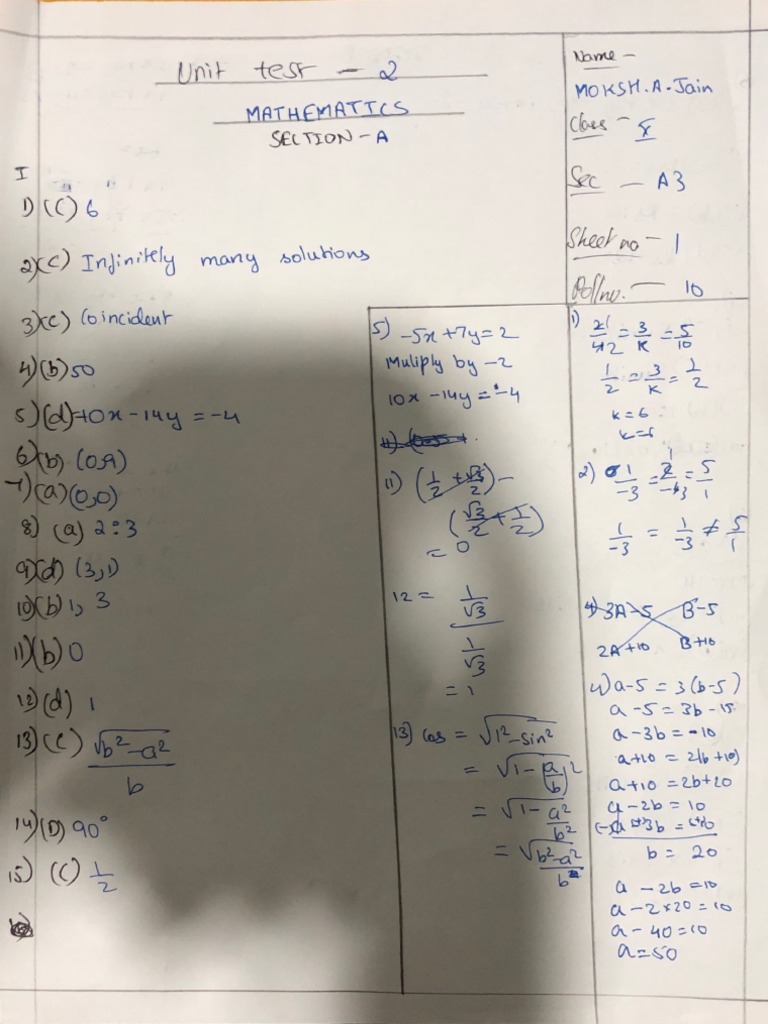 Unit test - 2
MATHEMATICS
SECTION - A
Name -
MOKSH.A.Jain
Class - X
Sec - A3
Sheet no - 1
Roll no. - 10
I
1) (C) 6
2) (C) Infinitely many solutions
3) (C) Coincident
4) (b) 50
5) (d) -10x - 14y = -4
6) (b) (0,9)
7) (a) (0,0)
8) (a) 2:3
9) (d) (3,1)
10) (b) 1, 3
11) (b) 0
12) (d) 1
13) (C) √b²-a² / b
14) (D) 90°
15) (C) 1/2
5) -5x + 7y = 2
Muliply by -2
10x - 14y = -4
11) (1/2 + √3/2) -
(√3/2 + 1/2)
= 0
12 = 1/√3 / 1/√3
= 1
13) cos = √1² - sin²
= √1 - (a/b)²
= √1 - a²/b²
= √b²-a²/b²
1) 21/42 = 3/K = 5/10
1/2 = 3/K = 1/2
K = 6
K = 6
2) 1/-3 = 2/-6 = 5/1
1/-3 = 1/-3 ≠ 5/1
4) 3A-5 B-5
2A+10 B+10
4) a-5 = 3(b-5)
a-5 = 3b-15
a-3b = -10
a+10 = 2(b+10)
a+10 = 2b+20
a-2b = 10
(-) a 3b = 10
b = 20
a - 2b = 10
a - 2×20 = 10
a - 40 = 10
a = 50